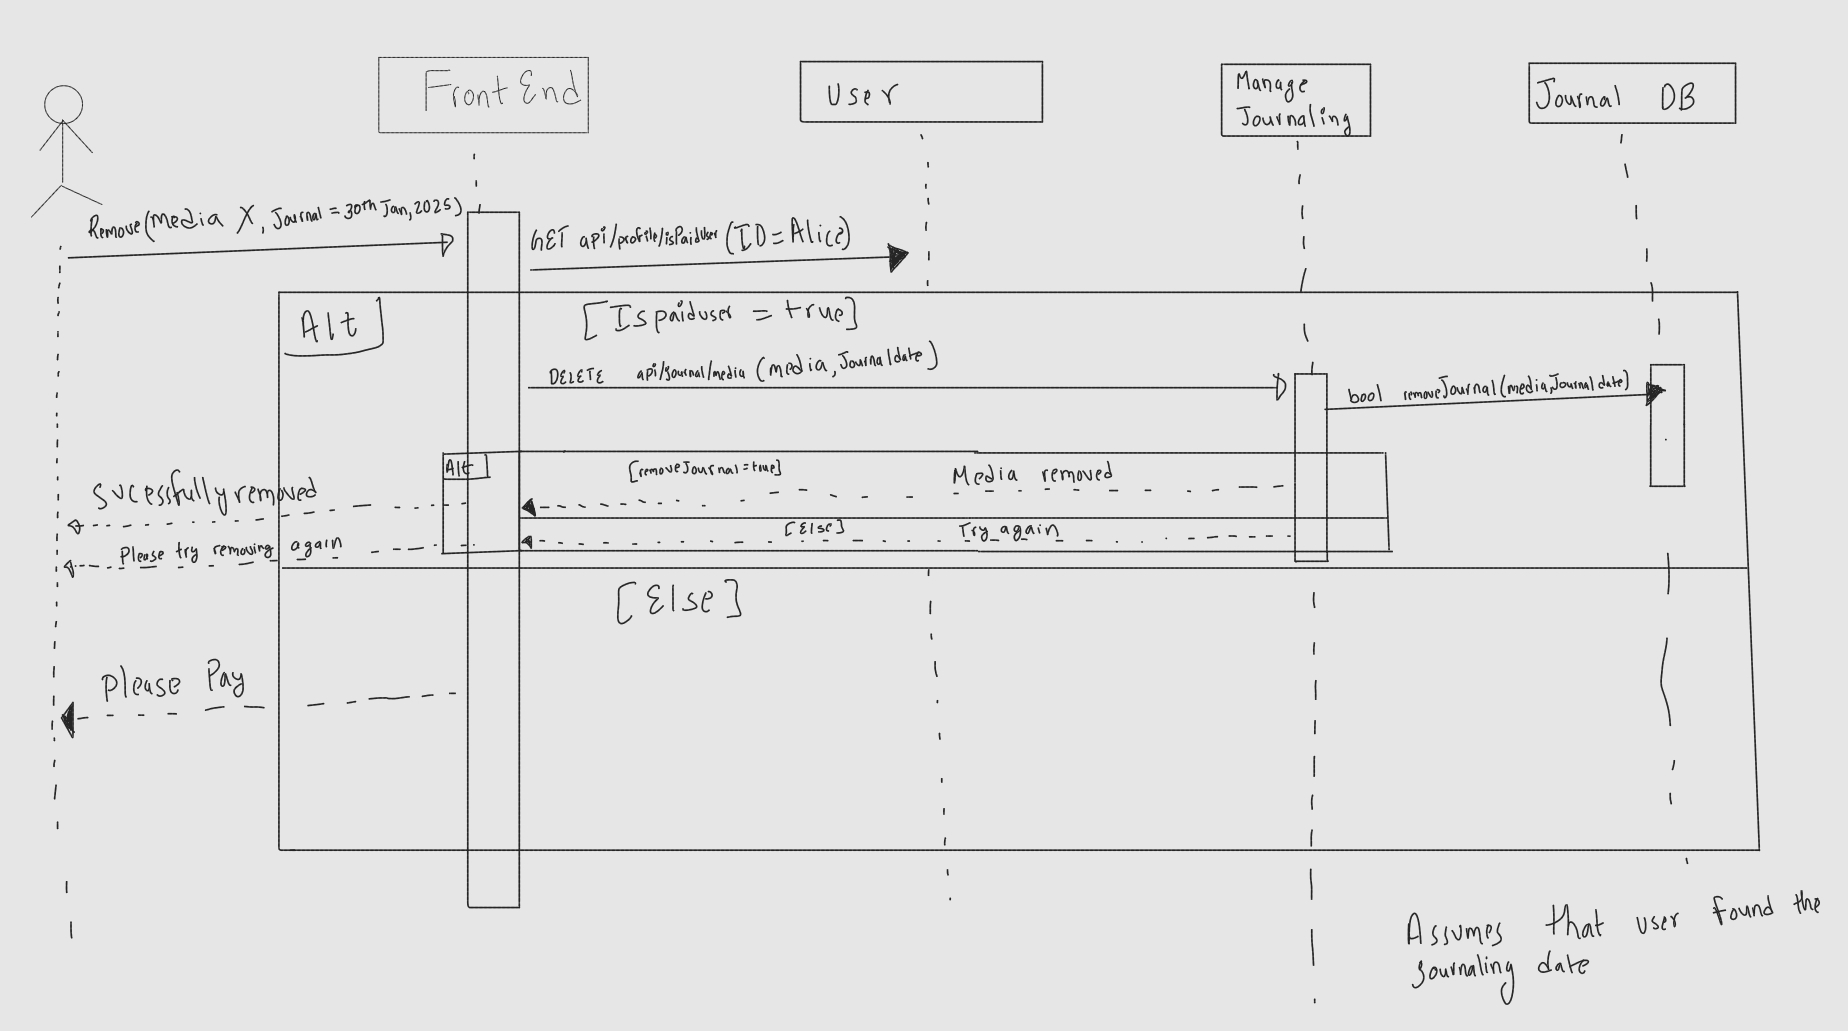 Front End
User
Manage
Journaling
Journal DB
Remove(Media X, Journal = 30th Jan, 2025)
GET api/profile/isPaidUser (ID=Alice)
Alt
[Ispaiduser = true]
DELETE api/journal/media (media, Journaldate)
bool removeJournal(media, Journal date)
Alt
[removeJournal=true]
Media removed
Sucessfully removed
[Else]
Try again
Please try removing again
[Else]
Please Pay
Assumes that user found the
journaling date